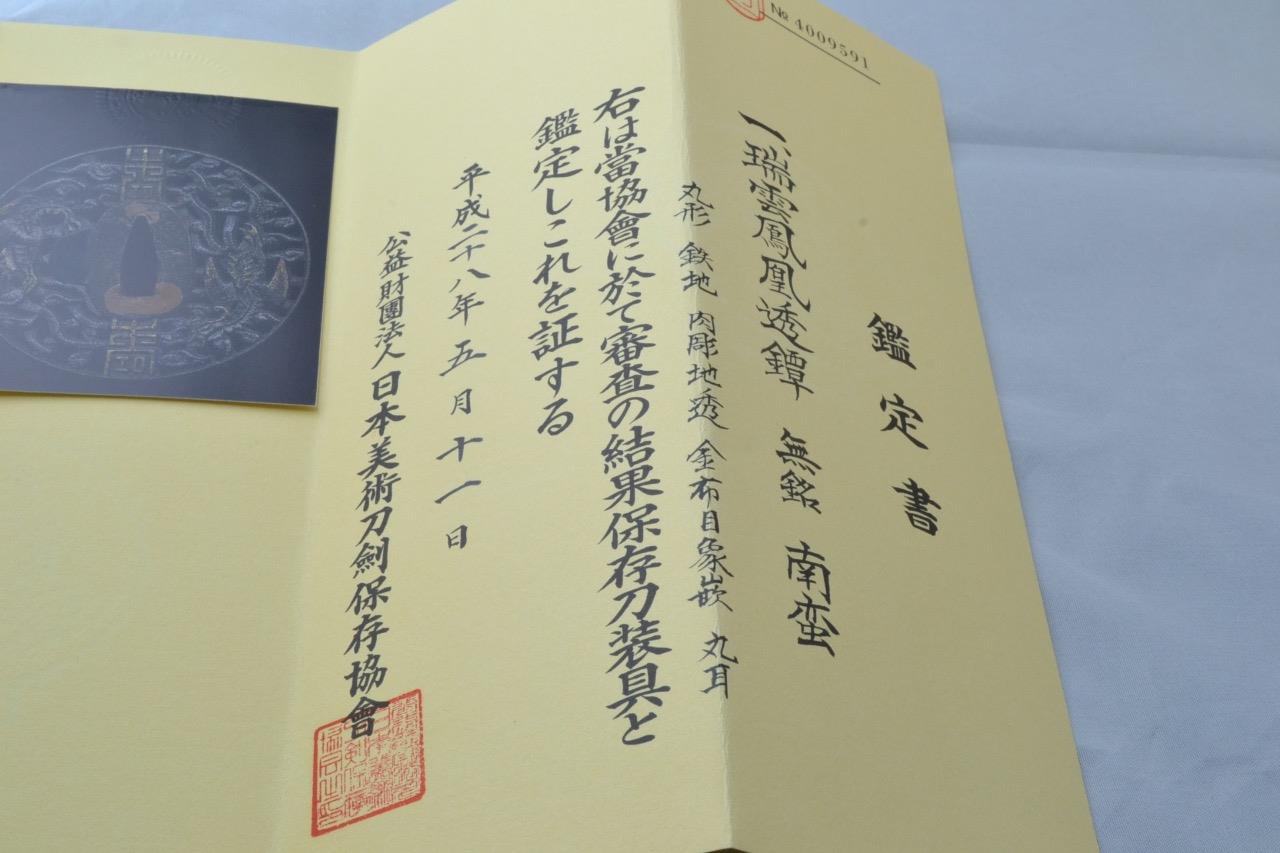 № 4009591
鑑定書
一、瑞雲鳳凰透鐔 無銘 南蛮
丸形 鉄地 肉彫地透 金布目象嵌 丸耳
右は當協會に於て審査の結果保存刀装具と
鑑定しこれを証する
平成二十八年五月十一日
公益財團法人日本美術刀劍保存協會